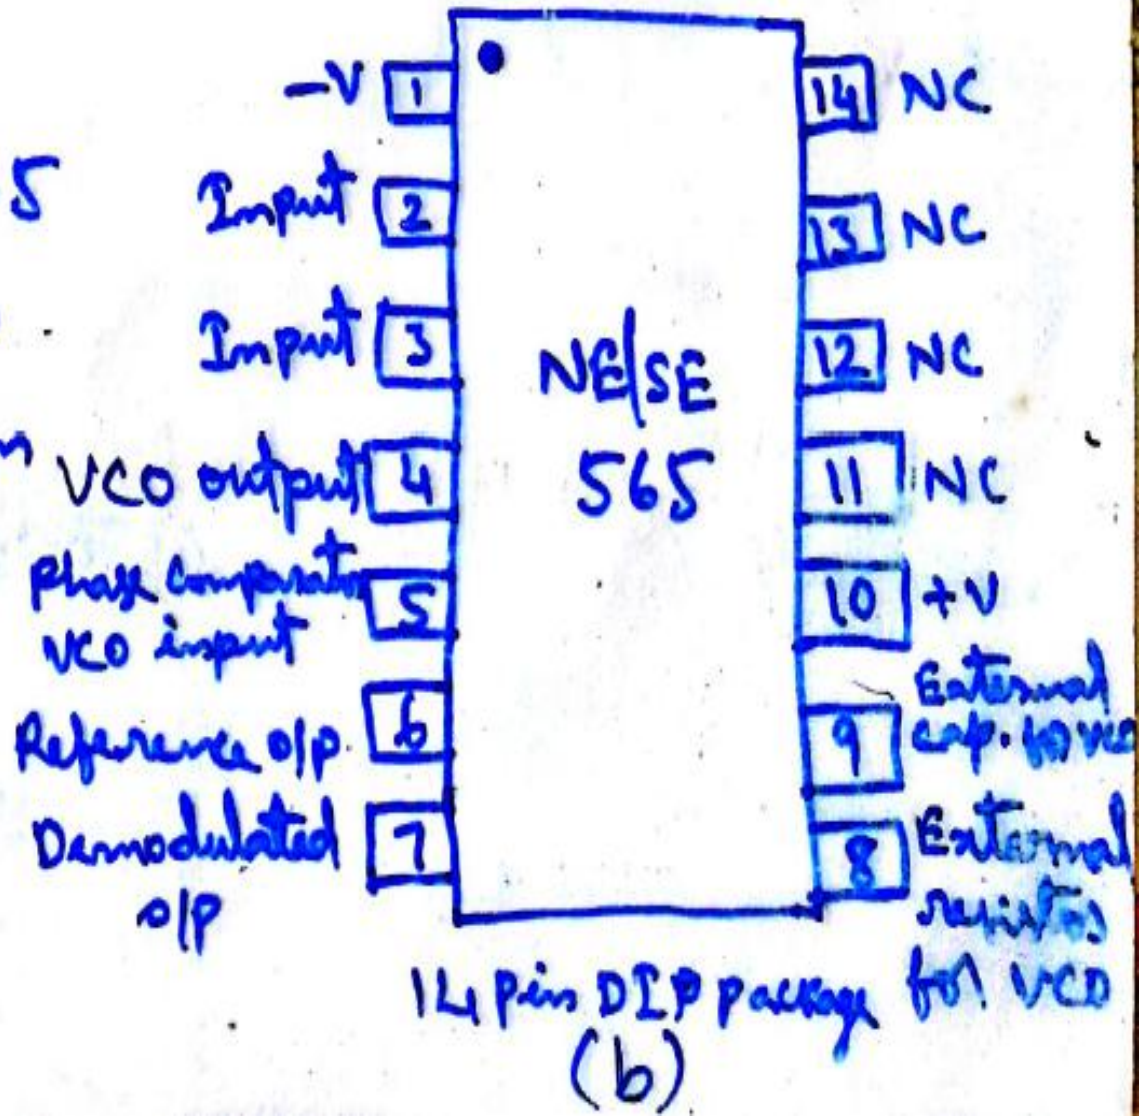 -V 1
5
Input 2
Input 3
VCO output 4
Phase comparator 5
VCO input
Reference o/p. 6
Demodulated 7
o/p
NE/SE
565
14 NC
13 NC
12 NC
11 NC
10 +V
External
9 cap. for VCO
8 External
resistor
for VCO
14 pin DIP package
(b)